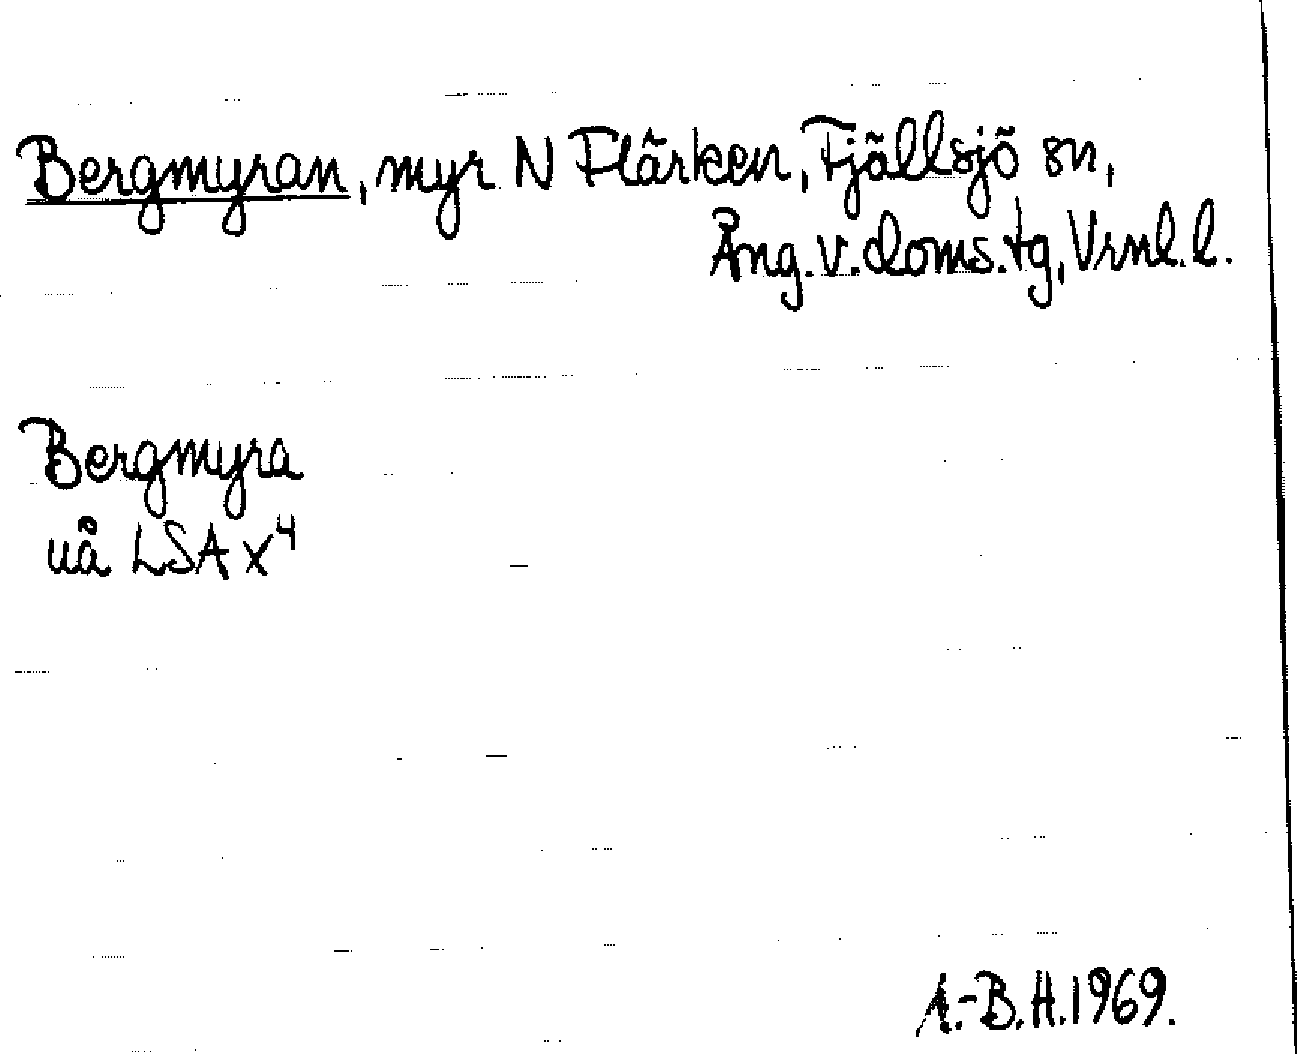 Bergmyran, myr N Flärken, Fjällsjö sn,
Ång.v.doms.tg, Vrnl.l.
Bergmyra
uå LSA x⁴
A.-B.H.1969.